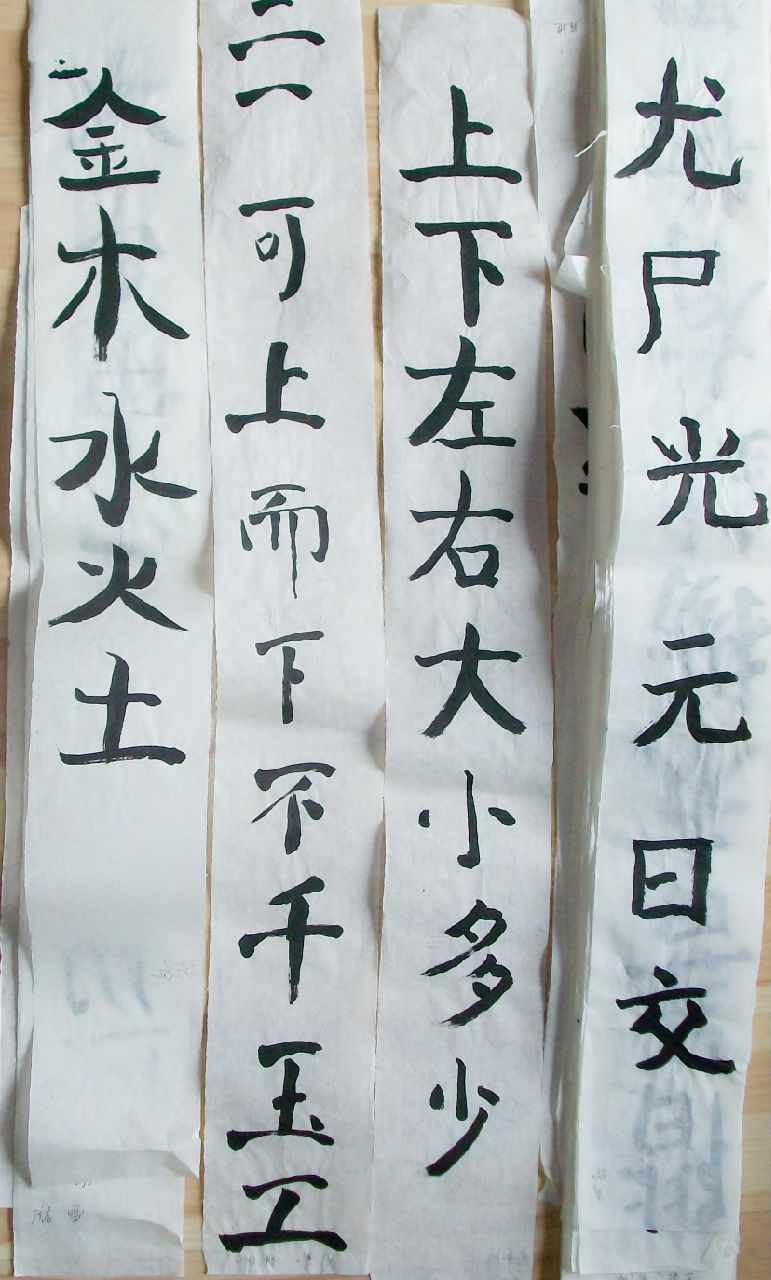 尤尸光元日交
上下左右大小多少
二一可上而下不千玉工
金木水火土